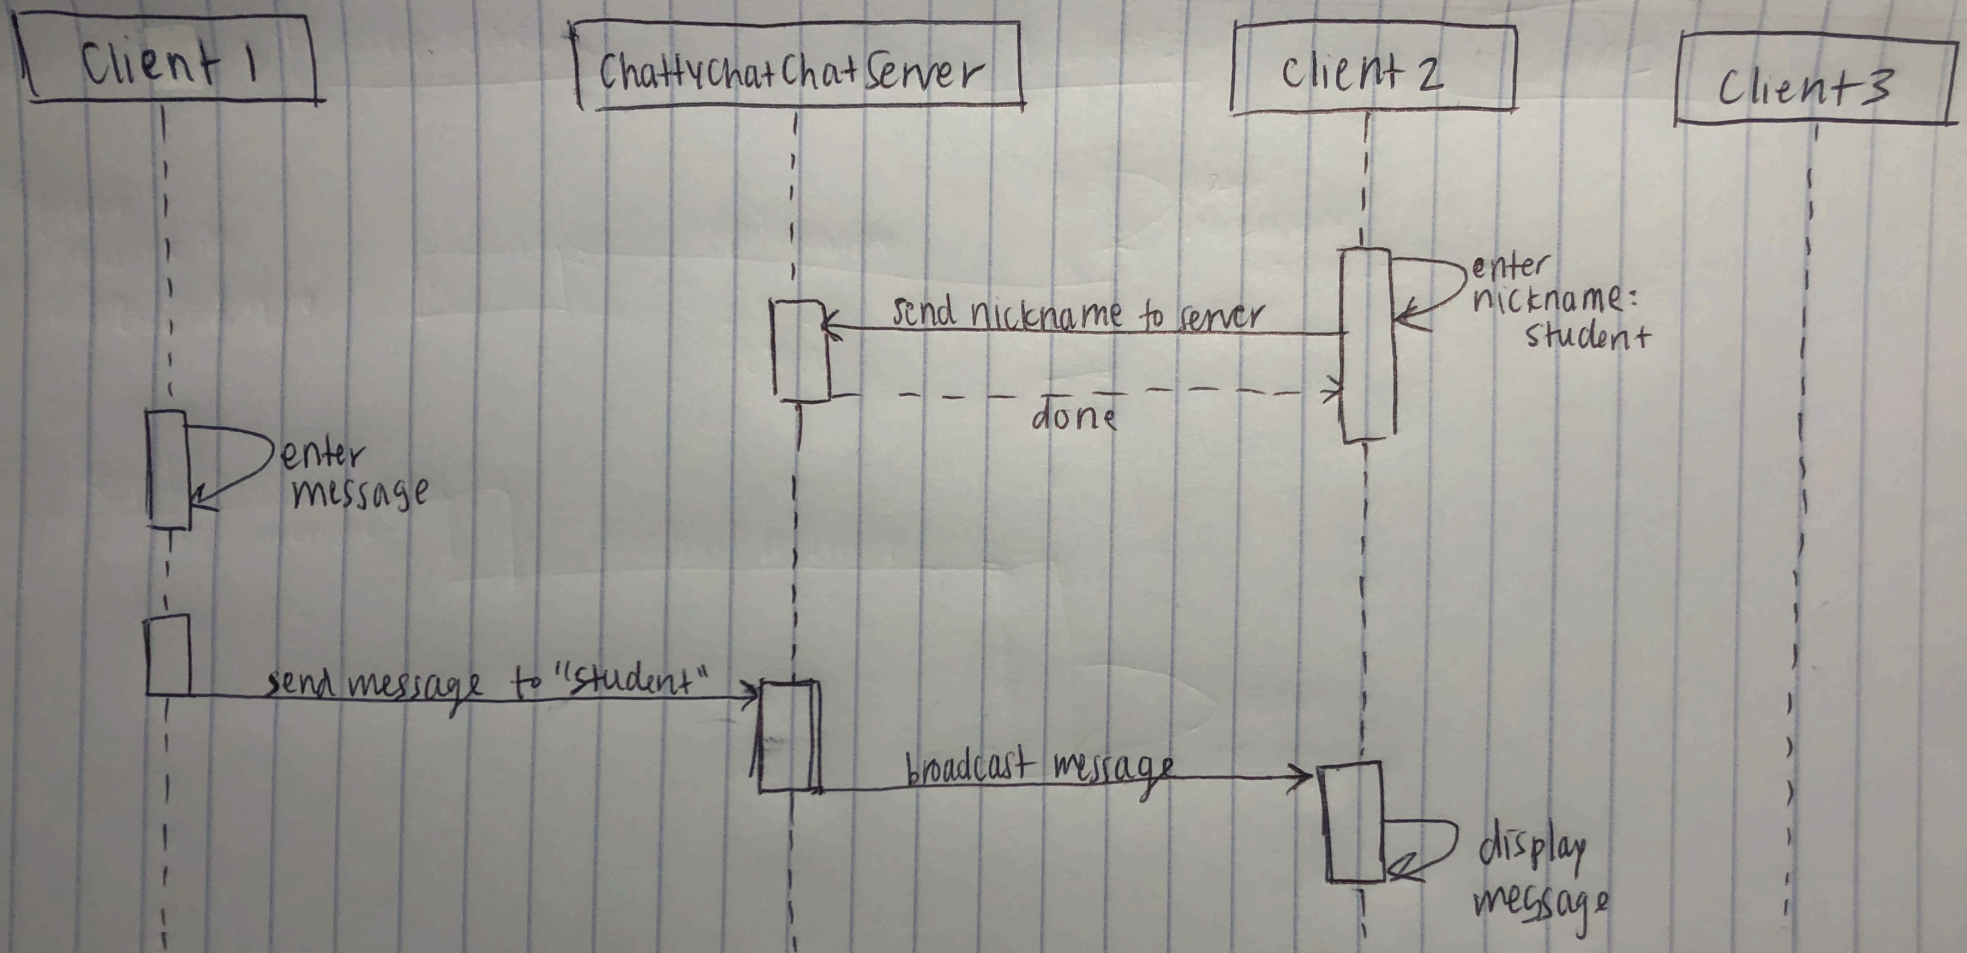 Client 1
ChattyChatChatServer
Client 2
Client 3
enter
nickname:
student
send nickname to server
done
enter
message
send message to "student"
broadcast message
display
message